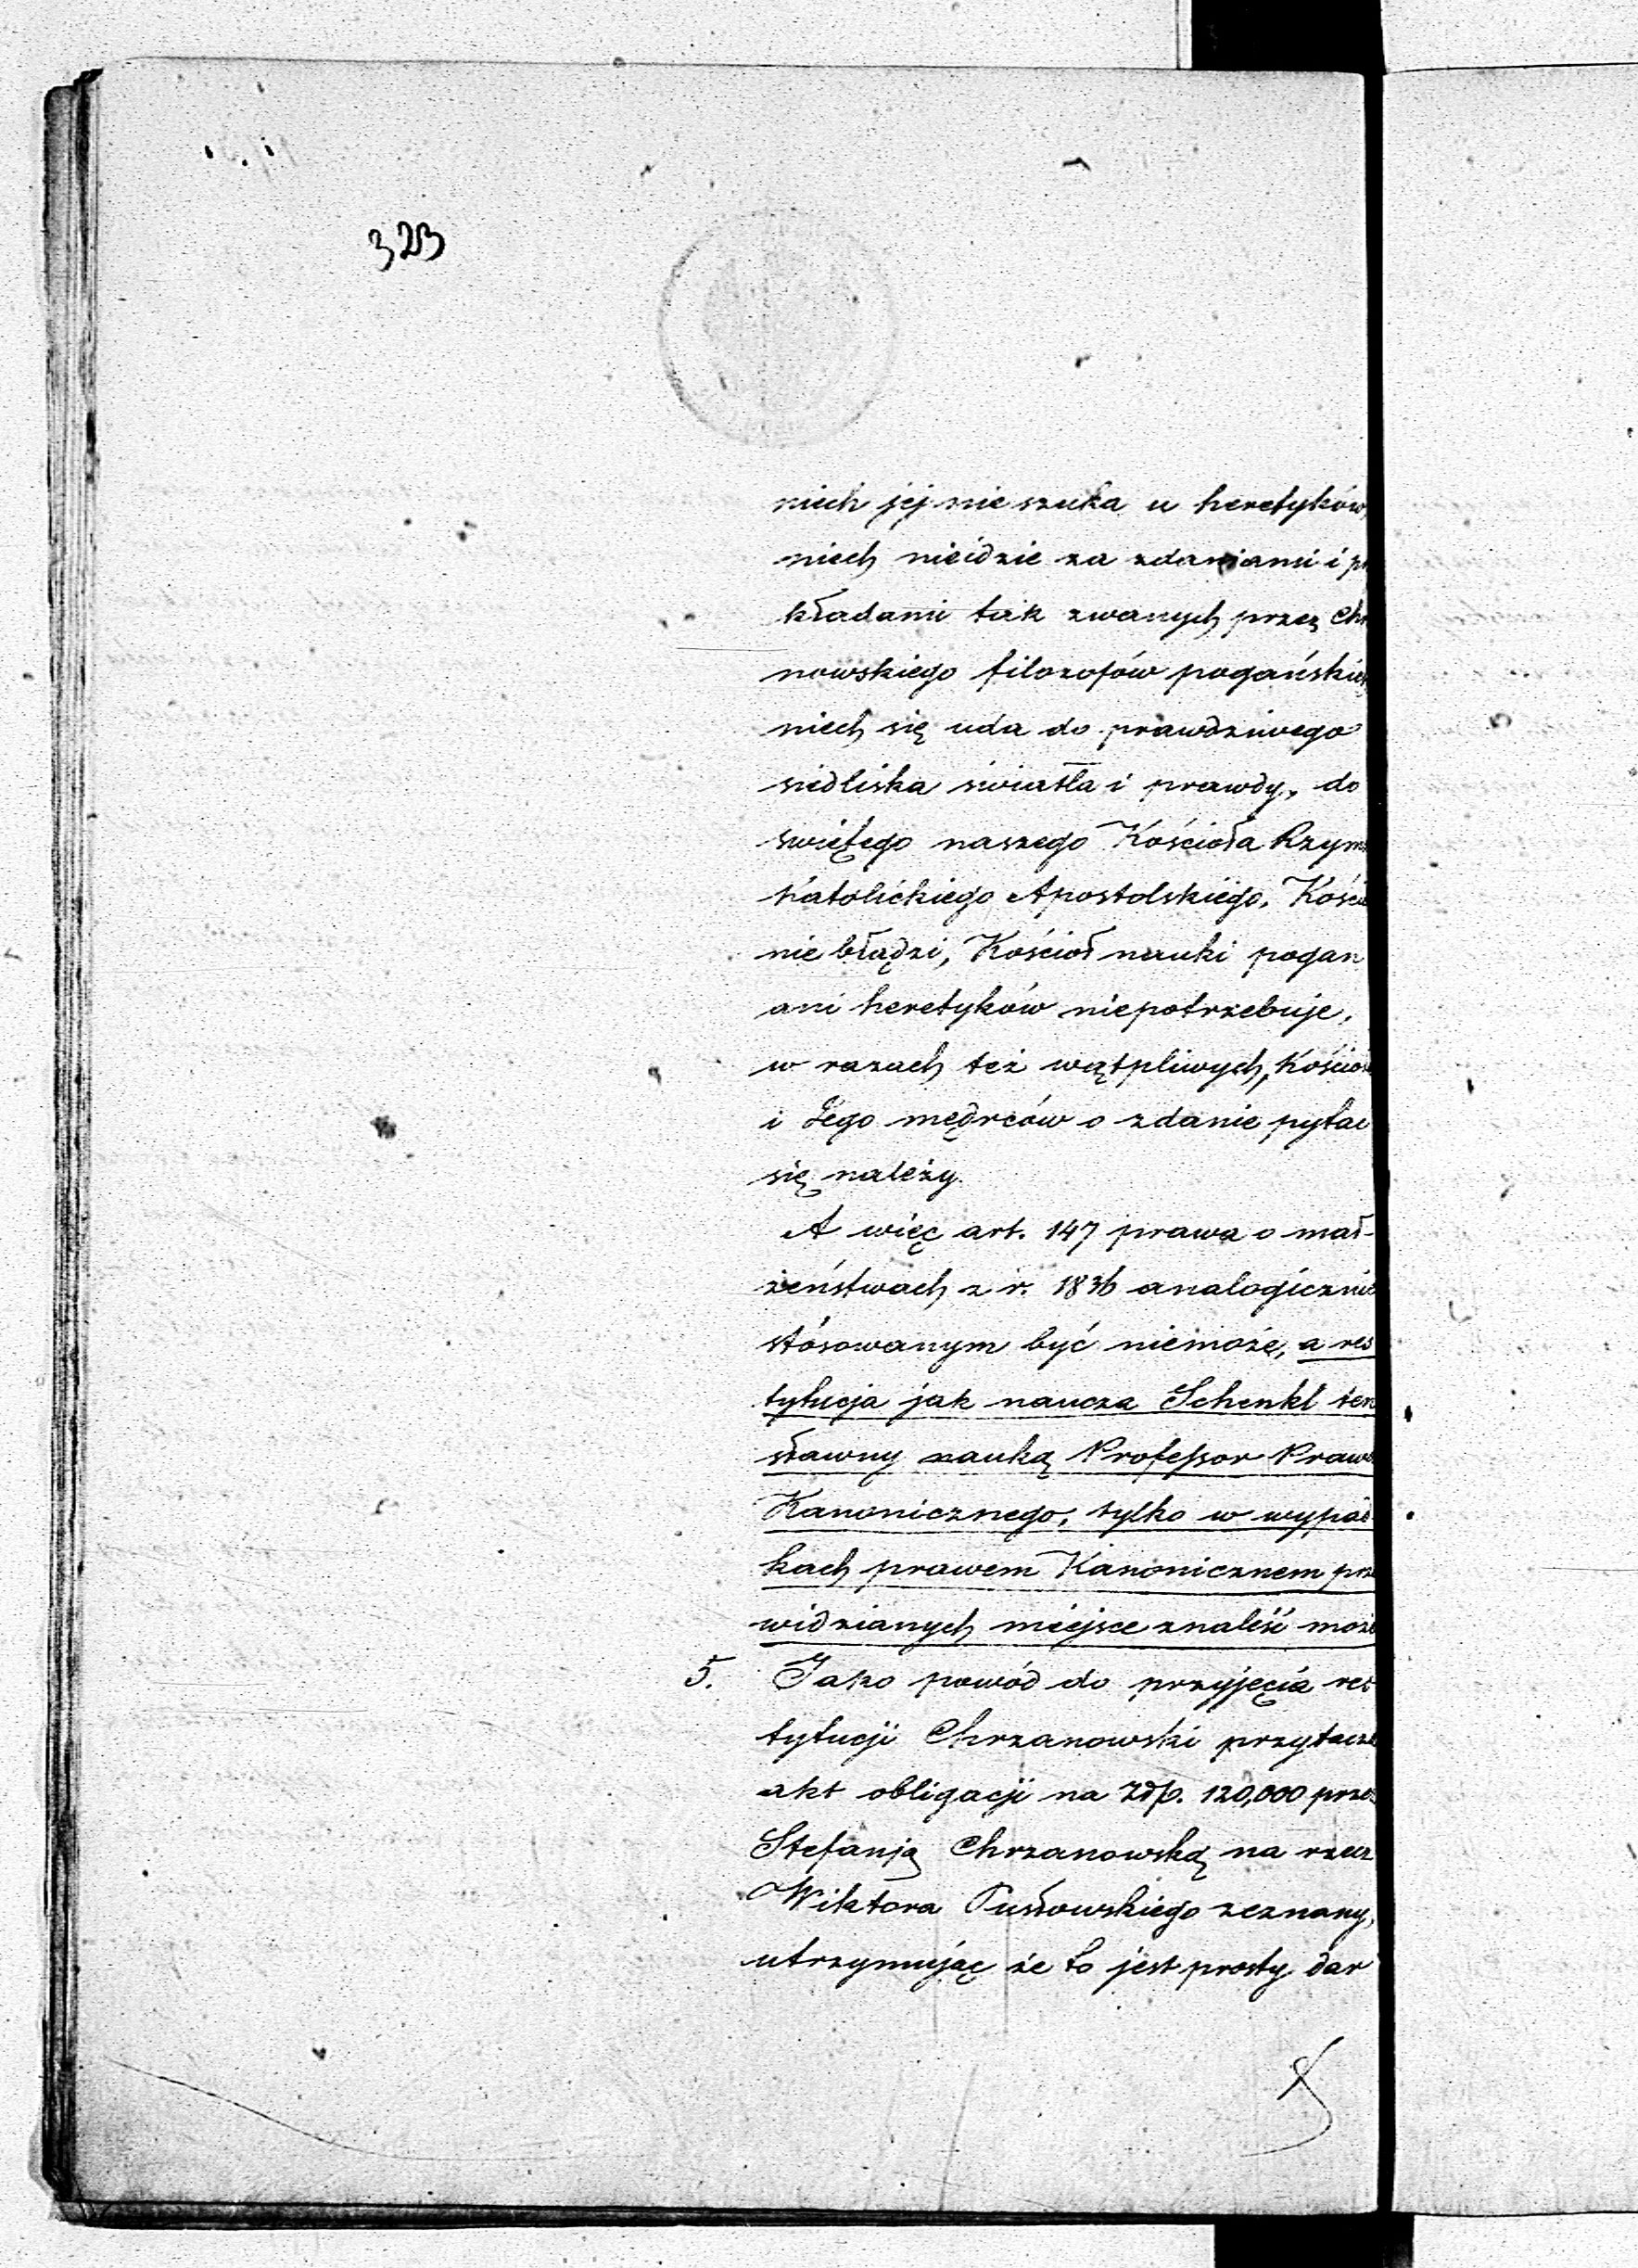 323
niech jej nie szuka u heretyków,
niech nieidzie za zdaniami i p
kładami tak zwanych przez Ch
nowskiego filozofów pogańskich
niech się uda do prawdziwego
siedliska światła i prawdy, do
świętego naszego Kościoła Rzym
Katolickiego Apostolskiego. Kości
nie błądzi, Kościoł nauki pogan
ani heretyków niepotrzebuje,
w razach też wątpliwych, Kościoł
i Jego mędrców o zdanie pytać
się należy.
A więc art. 147 prawa o mał-
żeństwach z r. 1836 analogicznie
stósowanym być niemoże, a res
tytucja jak naucza Schenkl ten
sławny nauką Professor Prawa
Kanonicznego, tylko w wypad
kach prawem Kanonicznem prze
widzianych miejsce znaleść może
5. Jako powód do przyjęcia res
tytucji Chrzanowski przytacza
akt obligacji na Złp. 120,000 przez
Stefanją Chrzanowską na rzecz
Wiktora Pusłowskiego zeznany,
utrzymując że to jest prosty dar